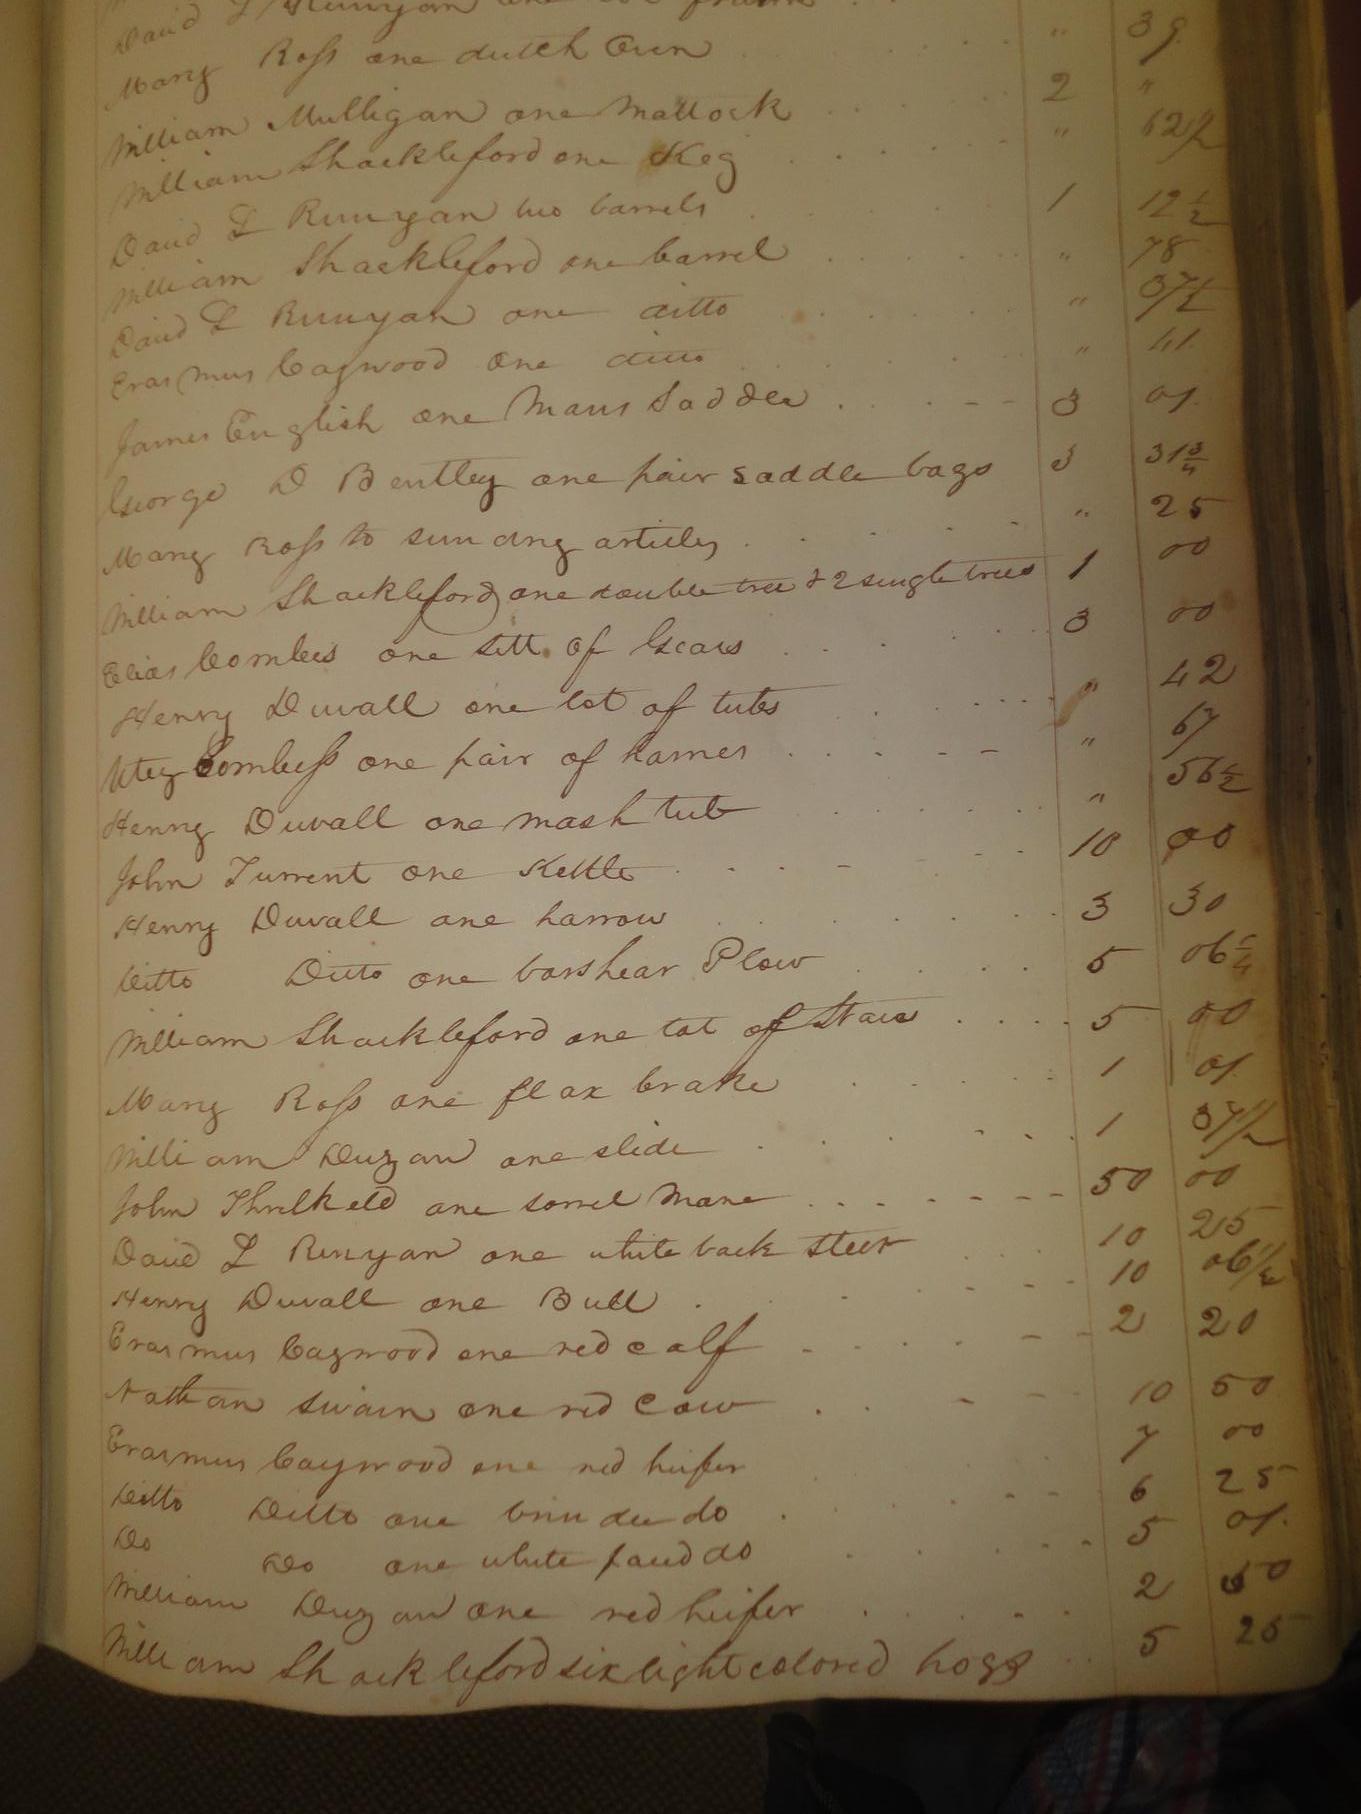 David L Runyan one
Mary Ross one dutch Oven " 39
William Mulligan one Mattock 2 "
William Shackleford one Keg " 62 1/2
David L Runyan two barrels 1 12 1/2
William Shackleford one barrel " 78
David L Runyan one ditto " 37 1/2
Erasmus Caywood one ditto " 41
James English one Mans Saddle 3 01
George D Bentley one pair saddle bags 3 31 3/4
Mary Ross to sundry articles " 25
William Shackleford one double tree & 2 single trees 1 00
Elias Combes one sett of Gears 3 00
Henry Duvall one lot of tubs " 42
Utey Combess one pair of hames " 67
Henry Duvall one mash tub " 56 1/2
John Turrent one Kettle 10 00
Henry Duvall one harrow 3 30
Ditto Ditto one barshear Plow 5 06 1/4
William Shackleford one lot of 5 00
Mary Ross one flax brake 1 01
William Duzan one slide 1 37 1/2
John Threlkeld one sorrel Mare 50 00
David L Runyan one white back steer 10 25
Henry Duvall one Bull 10 06 1/2
Erasmus Caywood one red calf 2 20
Nathan Swain one red Cow 10 50
Erasmus Caywood one red heifer 7 00
Ditto Ditto one brindee do 6 25
Do Do one white facd do 5 01
William Duzan one red heifer 2 50
William Shackleford six light colored hogs 5 25